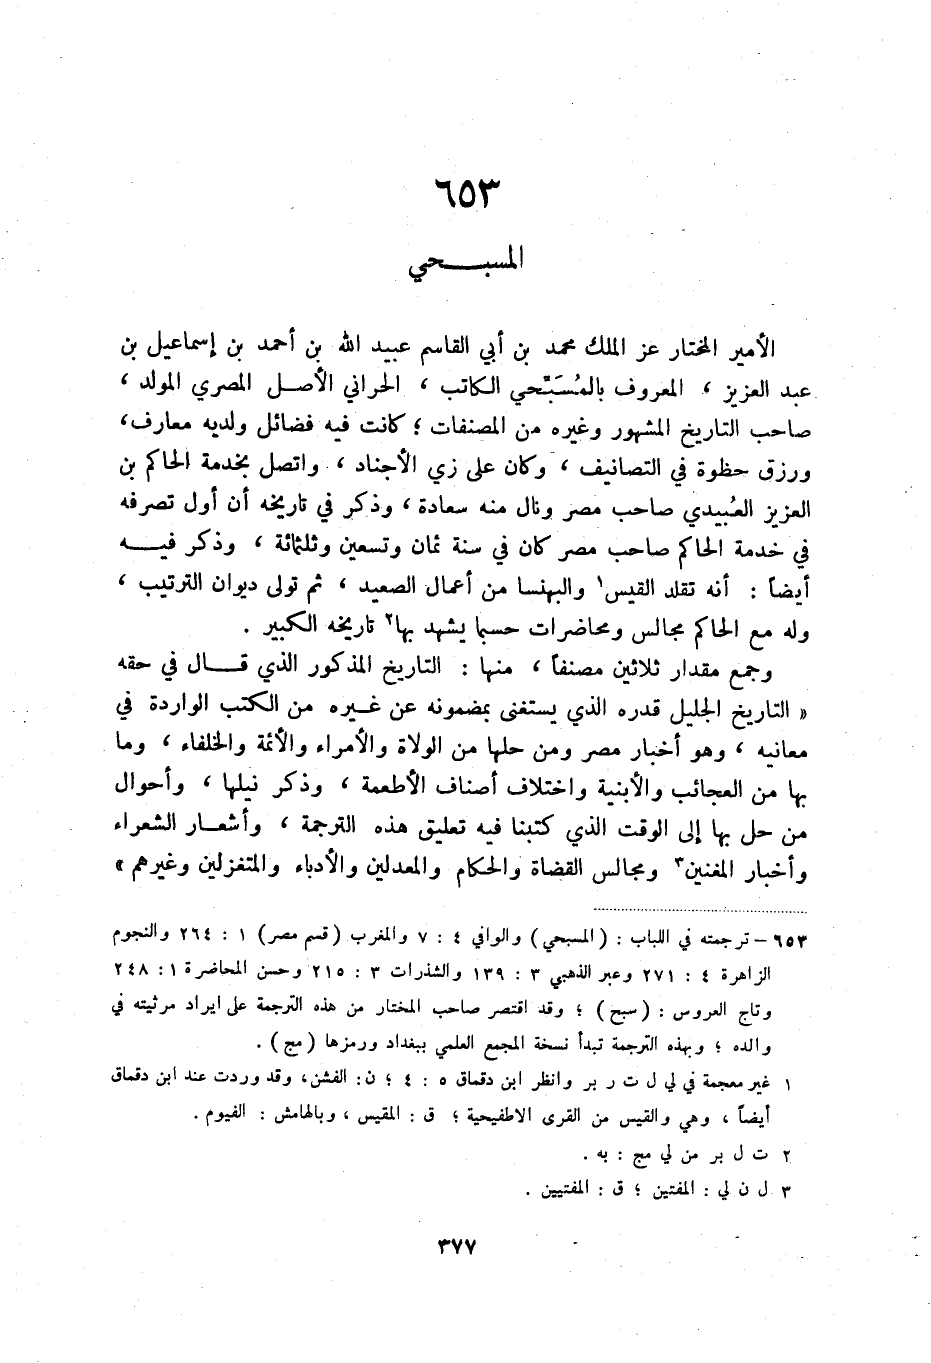 ٦٥٣
المسبحي
الأمير المختار عز الملك محمد بن أبي القاسم عبيد الله بن أحمد بن إسماعيل بن
عبد العزيز ، المعروف بالمُسَبِّحي الكاتب ، الحراني الأصل المصري المولد ،
صاحب التاريخ المشهور وغيره من المصنفات ؛ كانت فيه فضائل ولديه معارف ،
ورزق حظوة في التصانيف ، وكان على زي الأجناد ، واتصل بخدمة الحاكم بن
العزيز العُبيدي صاحب مصر ونال منه سعادة ، وذكر في تاريخه أن أول تصرفه
في خدمة الحاكم صاحب مصر كان في سنة ثمان وتسعين وثلثمائة ، وذكر فيه
أيضاً : أنه تقلد القيس١ والبهنسا من أعمال الصعيد ، ثم تولى ديوان الترتيب ،
وله مع الحاكم مجالس ومحاضرات حسبما يشهد بها٢ تاريخه الكبير .
وجمع مقدار ثلاثين مصنفاً ، منها : التاريخ المذكور الذي قال في حقه
« التاريخ الجليل قدره الذي يستغنى بمضمونه عن غيره من الكتب الواردة في
معانيه ، وهو أخبار مصر ومن حلها من الولاة والأمراء والأئمة والخلفاء ، وما
بها من العجائب والأبنية واختلاف أصناف الأطعمة ، وذكر نيلها ، وأحوال
من حل بها إلى الوقت الذي كتبنا فيه تعليق هذه الترجمة ، وأشعار الشعراء
وأخبار المغنين٣ ومجالس القضاة والحكام والمعدلين والأدباء والمتغزلين وغيرهم »
٦٥٣ – ترجمته في اللباب : ( المسبحي ) والوافي ٤ : ٧ والمغرب ( قسم مصر ) ١ : ٢٦٤ والنجوم
الزاهرة ٤ : ٢٧١ وعبر الذهبي ٣ : ١٣٩ والشذرات ٣ : ٢١٥ وحسن المحاضرة ١ : ٢٤٨
وتاج العروس : ( سبح ) ؛ وقد اقتصر صاحب المختار من هذه الترجمة على ايراد مرثيته في
والده ؛ وبهذه الترجمة تبدأ نسخة المجمع العلمي ببغداد ورمزها ( مج ) .
١ غير معجمة في لي ل ت ر بر وانظر ابن دقماق ٥ : ٤ ؛ ن : الفشن ، وقد وردت عند ابن دقماق
أيضاً ، وهي والقيس من القرى الاطفيحية ؛ ق : المقيس ، وبالهامش : الفيوم .
٢ ت ل بر من لي مج : به .
٣ ل ن لي : المفتين ؛ ق : المفتيين .
٣٧٧